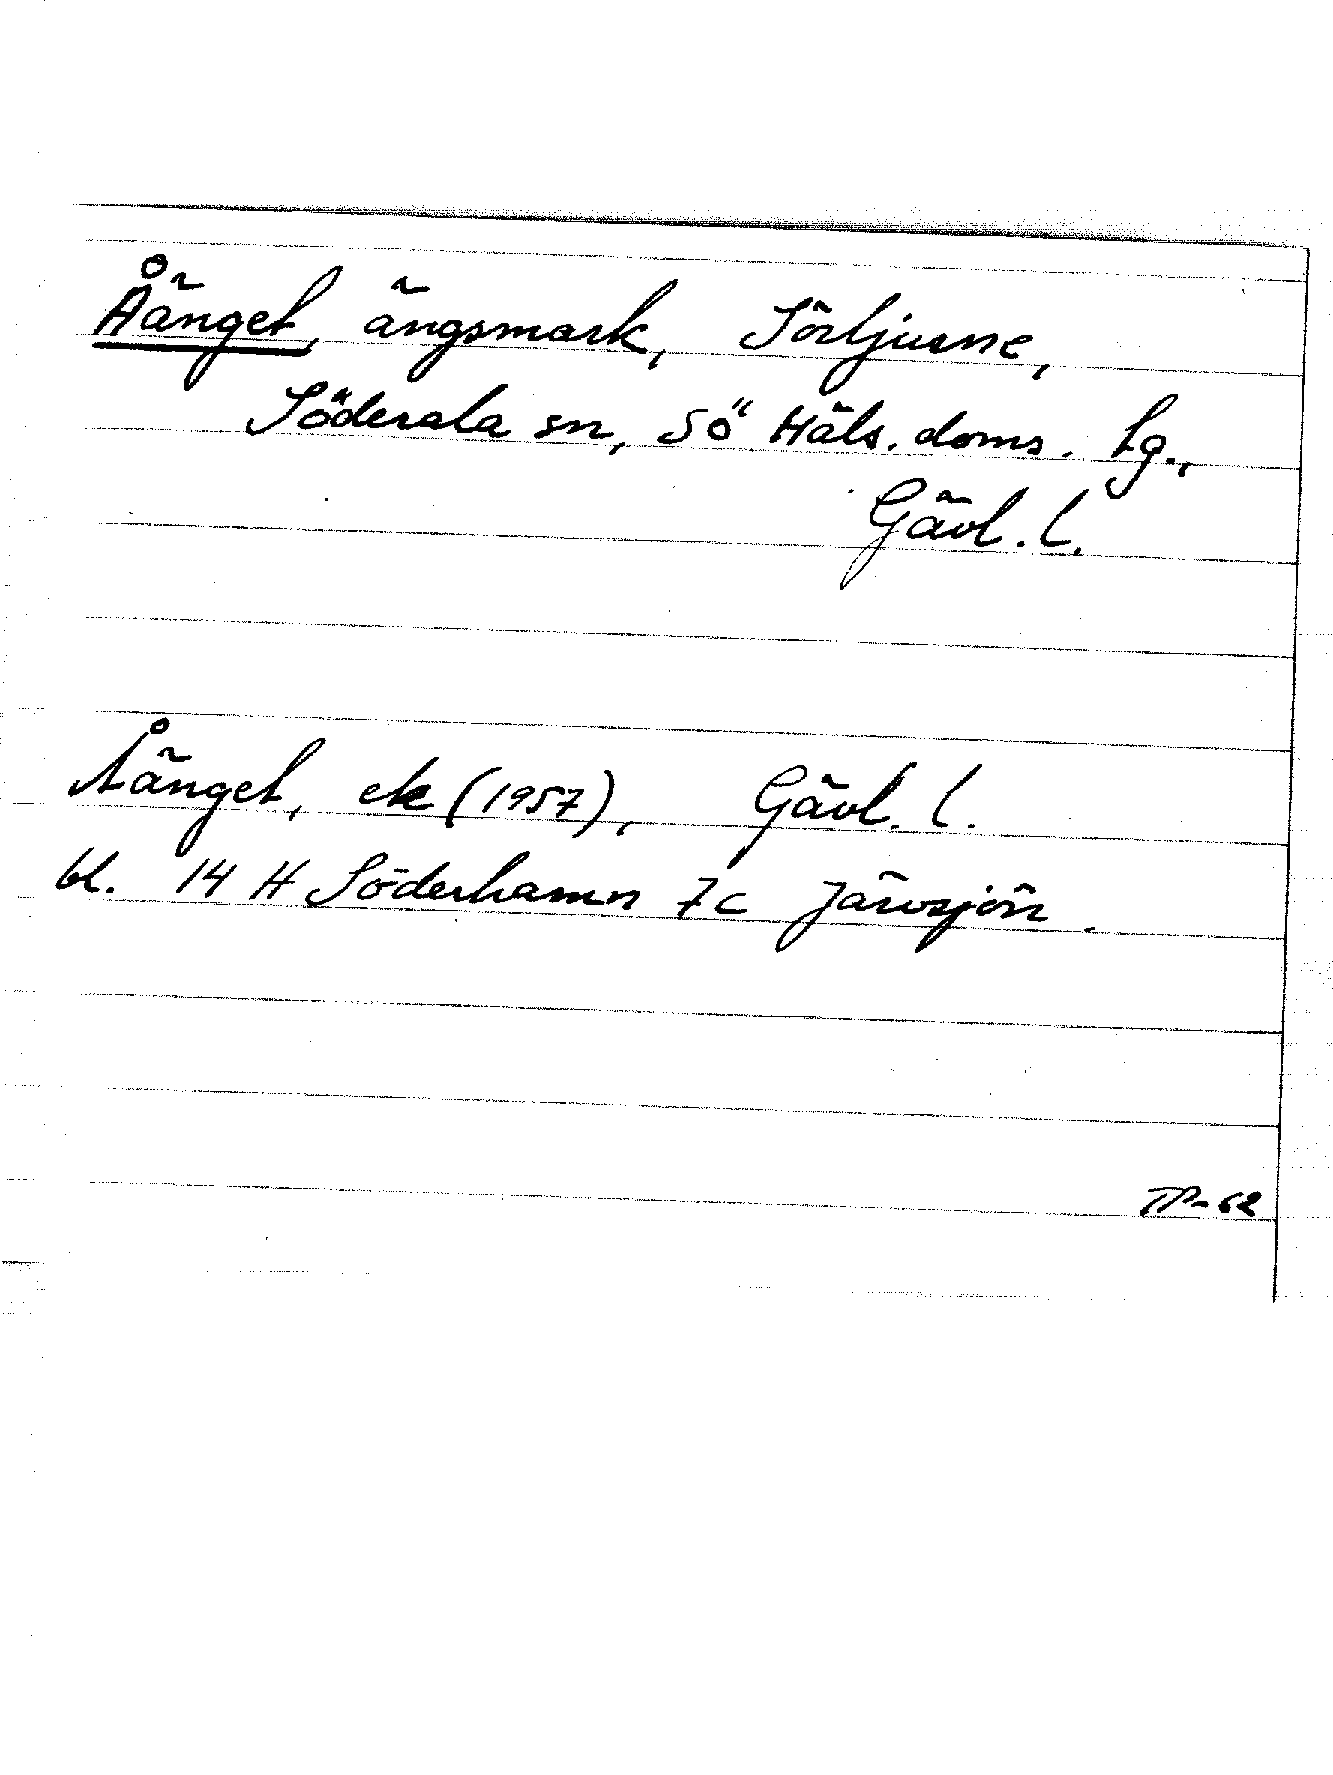 Åänget, ängsmark, Sörljusne,
Söderala sn, sö Häls. doms. tg.,
Gävl. l.
Åänget, ek (1957), Gävl. l.
bl. 14 H Söderhamn 7c Järvsjön.
TP-62